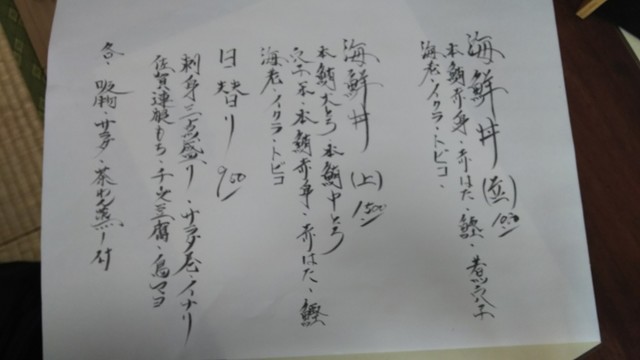 海鮮丼(並)1050
本鮪赤身・赤はた・鰹・煮穴子
海老・イクラ・トビコ
海鮮丼(上)1500
本鮪大とろ本鮪中とろ
穴子本・本鮪赤身・赤はた・鰹
海老・イクラ・トビコ
日替り 950
刺身三点盛り・サラダ・イナリ
佐賀蓮根もち・豆腐・鳥マヨ
各・吸物・サラダ・茶わん蒸し付